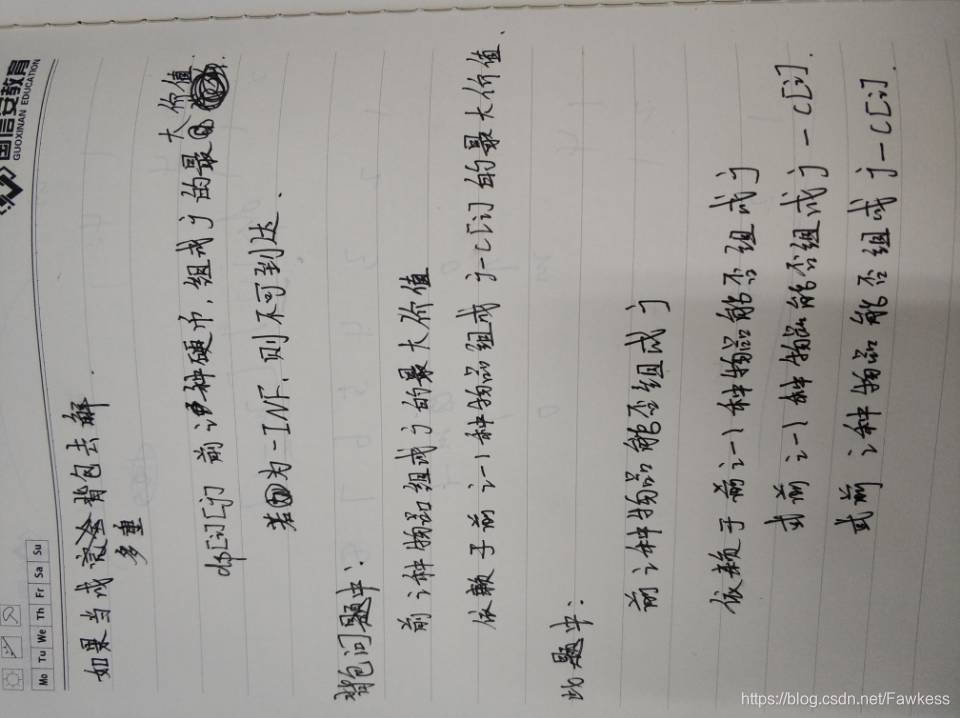 国信安教育
GUOXINAN EDUCATION
Mo Tu We Th Fr Sa Su
如果当成多重背包去解.
dp[i][j] 前i种硬币,组成j的最大价值.
若为-INF,则不可到达.
背包问题中:
前i种物品组成j的最大价值
依赖于前i-1种物品组成j-c[i]的最大价值.
此题中:
前i种物品能否组成j
依赖于前i-1种物品能否组成j
或前i-1种物品能否组成j-c[i].
或前i种物品能否组成j-c[i]
https://blog.csdn.net/Fawkess